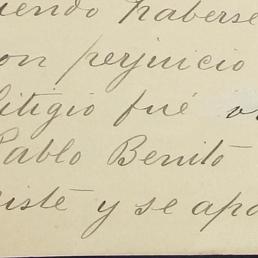 uendo haberse
on perjuicio
litigio fué
Pablo Benito
iste y se apa